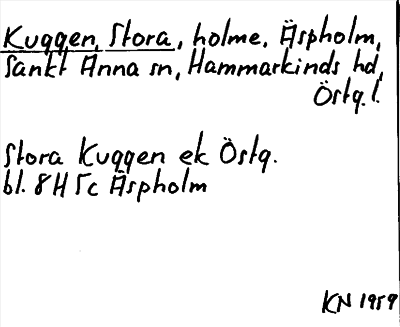 Kuggen, Stora, holme, Äspholm,
Sankt Anna sn, Hammarkinds hd,
Östg. l.
Stora Kuggen ek Östg.
bl. 8H 5c Äspholm
KN 1959